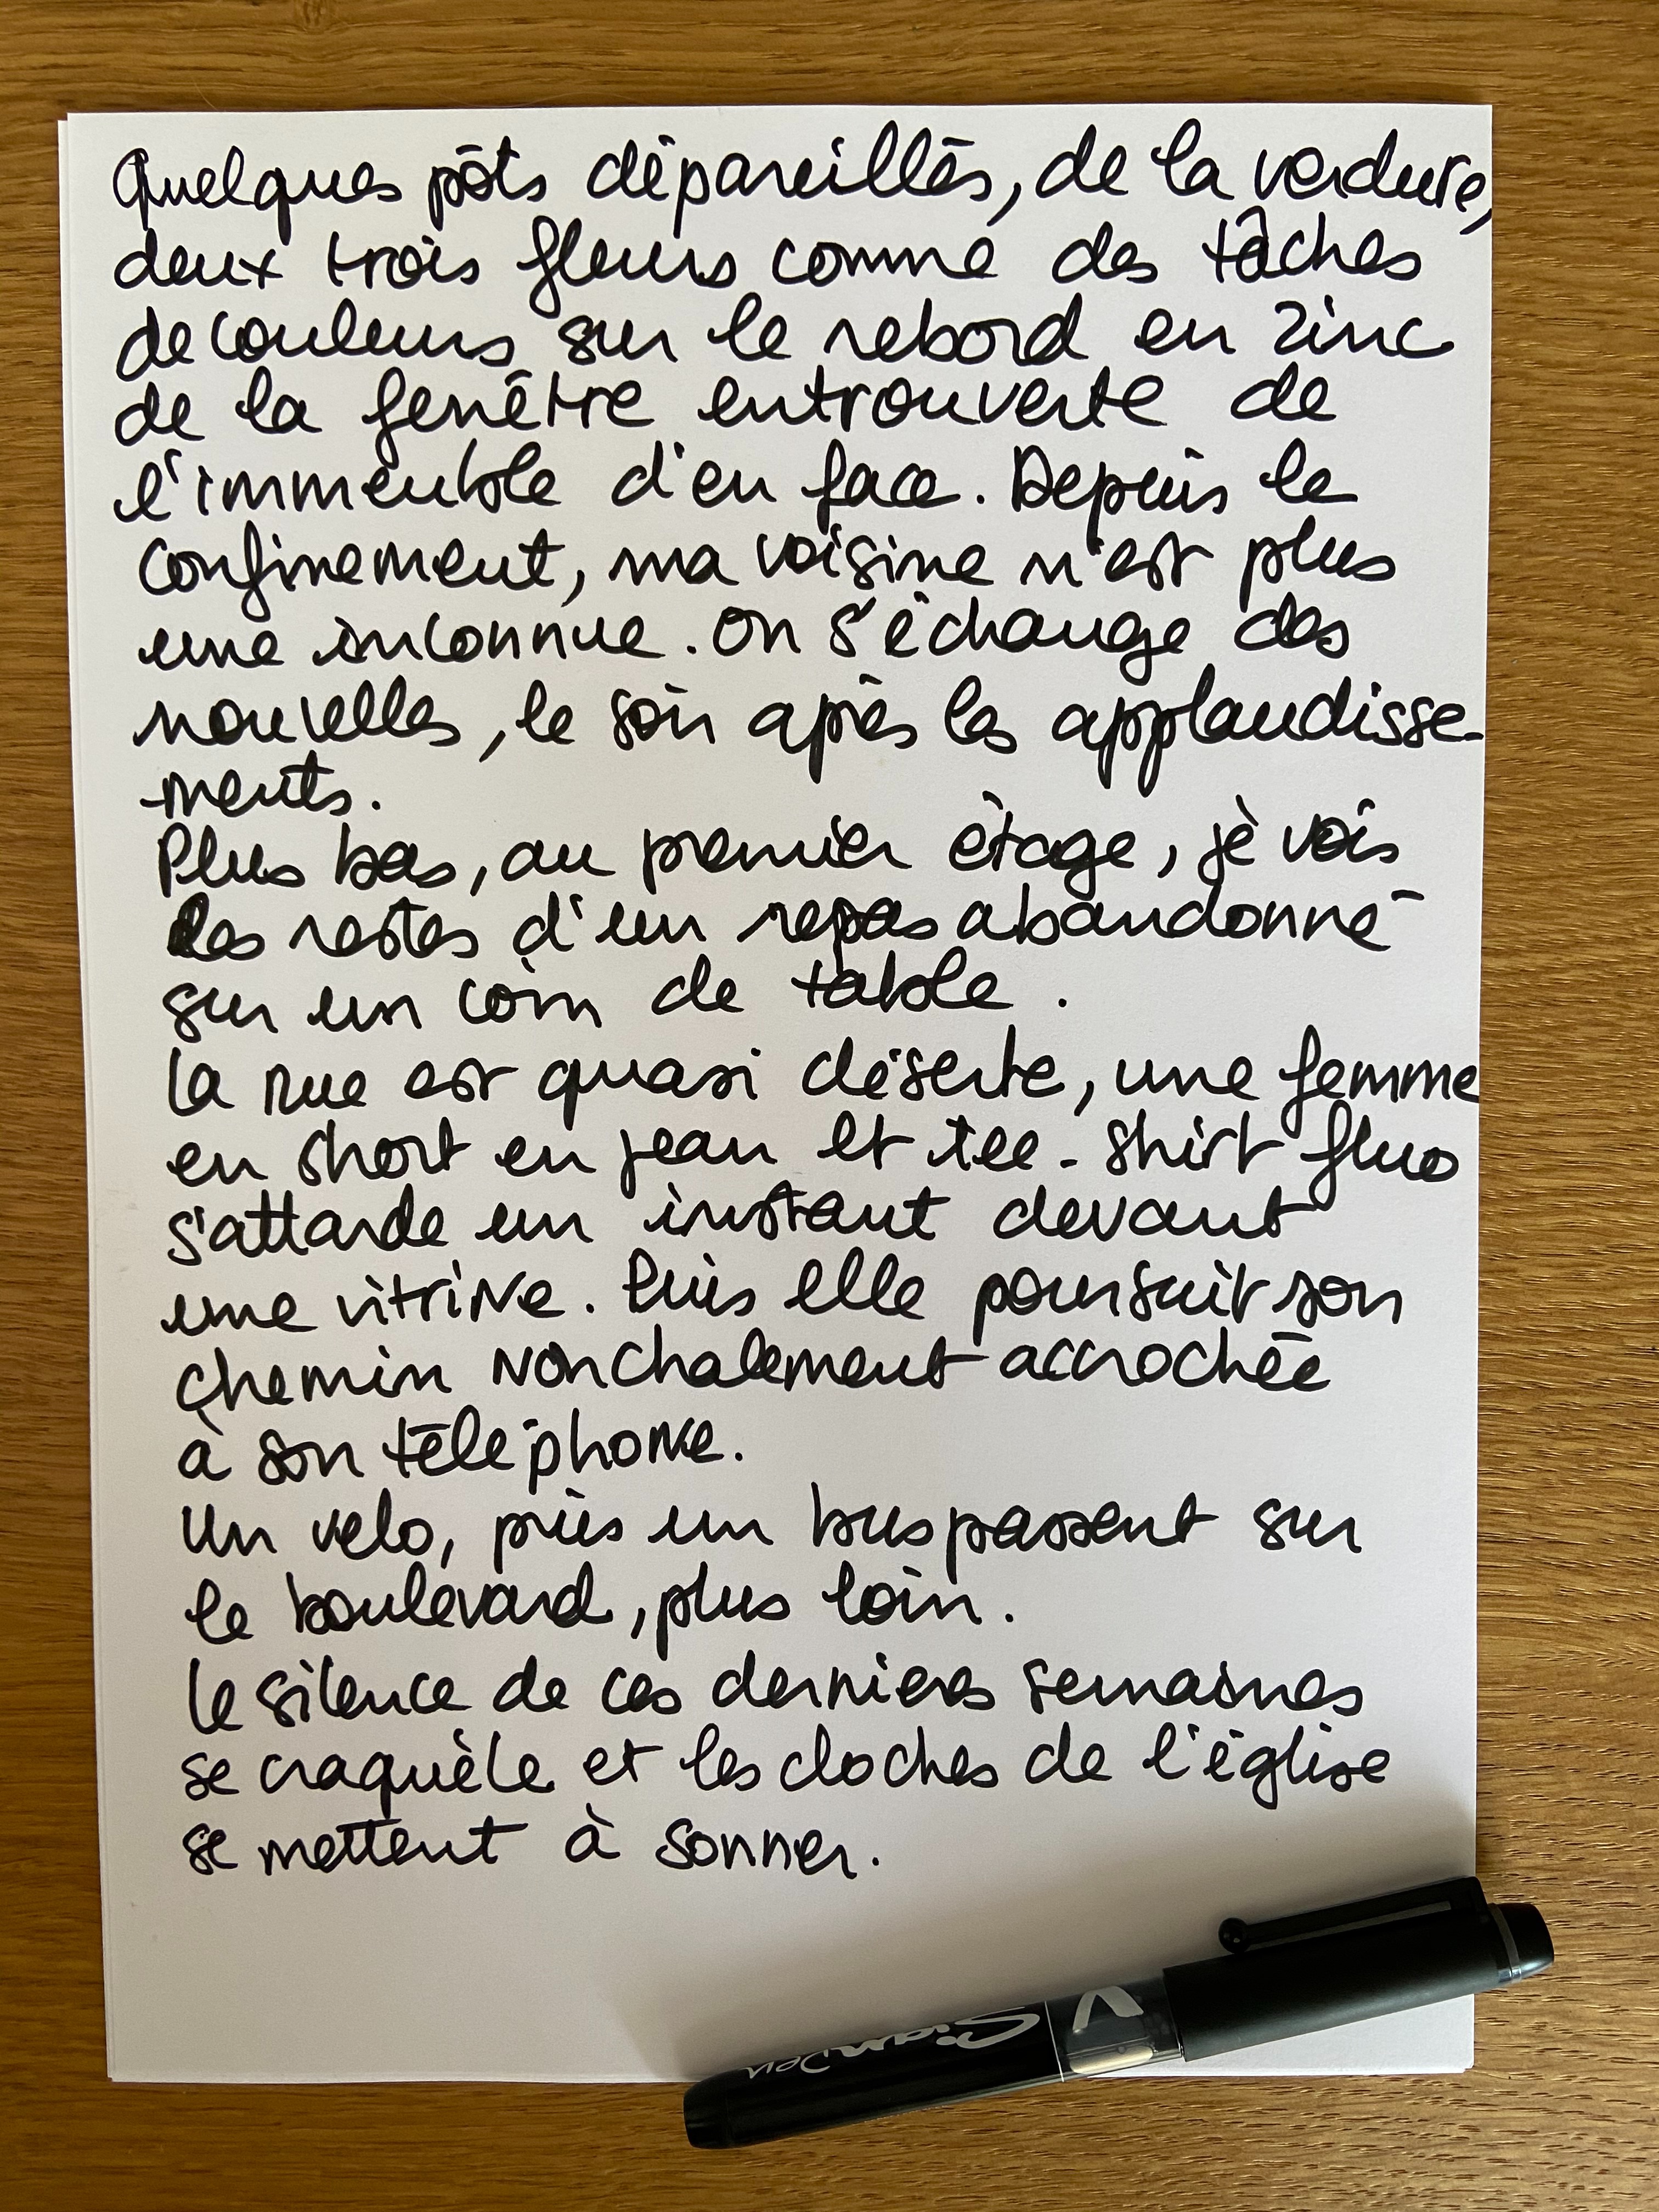 Quelques pôts dépareillés, de la verdure,
deux trois fleurs comme des tâches
de couleurs sur le rebord en zinc
de la fenêtre entrouverte de
l'immeuble d'en face. Depuis le
confinement, ma voisine n'est plus
une inconnue. On s'échange des
nouvelles, le soir après les applaudisse-
-ments.
Plus bas, au premier étage, je vois
les restes d'un repas abandonné
sur un coin de table.
La rue est quasi déserte, une femme
en short en jean et tee-shirt fluo
s'attarde un instant devant
une vitrine. Puis elle poursuit son
chemin nonchalement accrochée
à son téléphone.
Un velo, puis un bus passent sur
le boulevard, plus loin.
Le silence de ces dernieres semaines
se craquèle et les cloches de l'église
se mettent à sonner.
V
Sign Pen